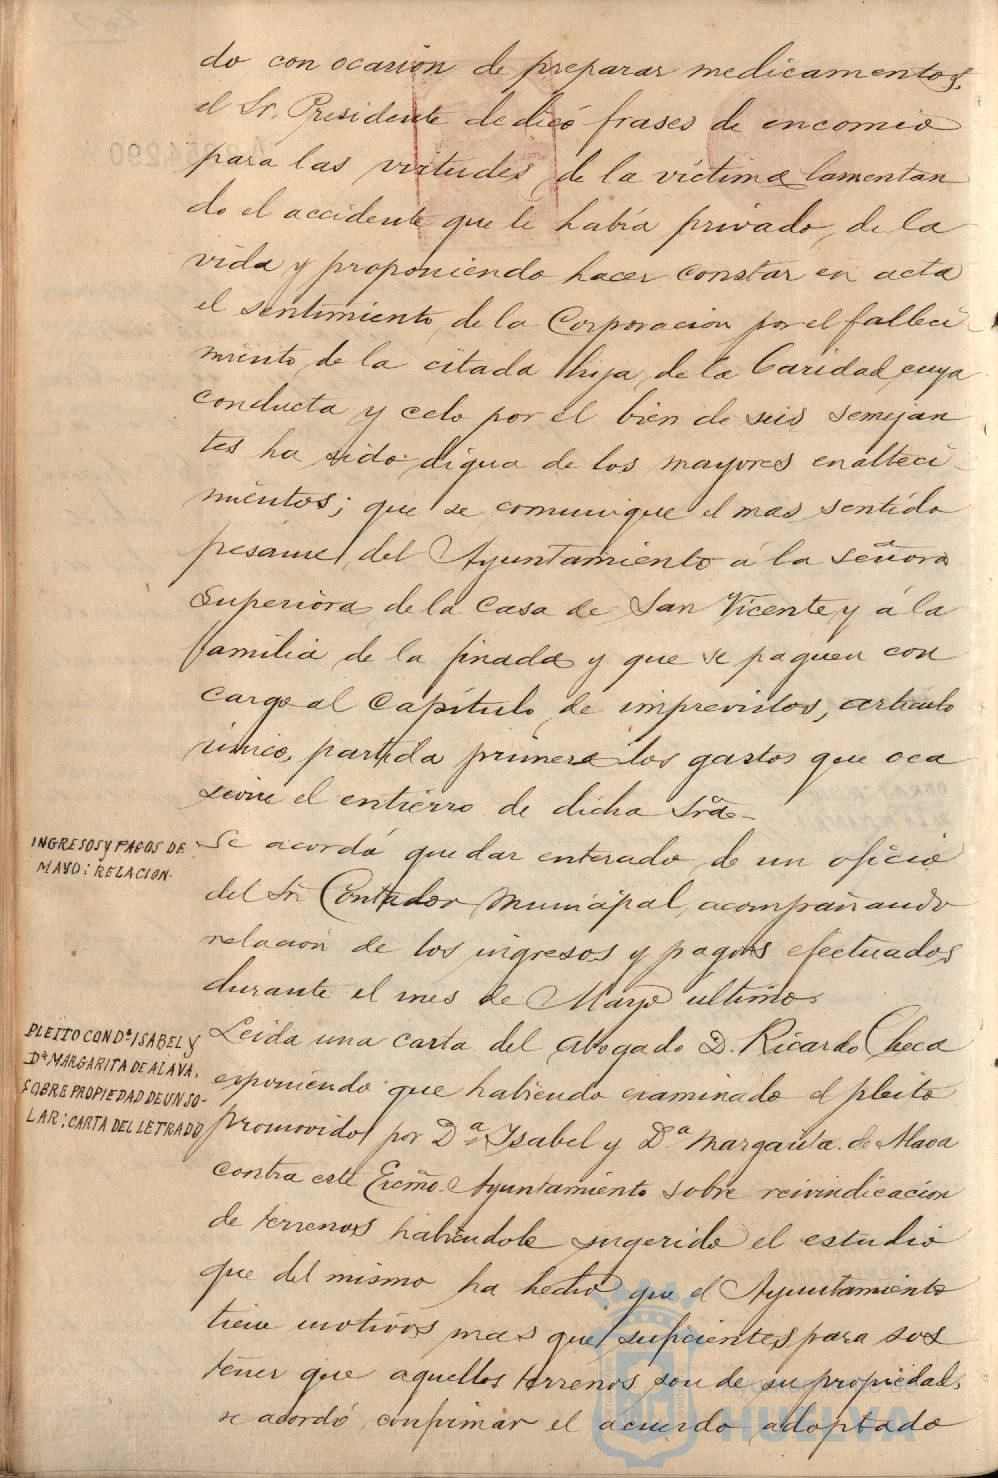 do con ocasión de preparar medicamentos,
el Sr. Presidente dedicó frases de encomio
para las virtudes de la víctima lamentan
do el accidente que le había privado de la
vida y proponiendo hacer constar en acta
el sentimiento de la Corporación por el falleci-
miento de la citada hija de la Caridad, cuya
conducta y celo por el bien de sus semejan
tes ha sido digna de los mayores enalteci-
mientos; que se comunique el mas sentido
pesame del Ayuntamiento á la señora
Superiora de la Casa de San Vicente y á la
familia de la finada y que se paguen con
cargo al Capítulo de imprevistos, artículo
único, partida primera los gastos que oca
sione el entierro de dicha Sra.-
INGRESOS Y PAGOS DE
MAYO: RELACION.
Se acordó quedar enterado de un oficio
del Sr. Contador Municipal, acompañando
relación de los ingresos y pagos efectuados
durante el mes de Mayo último.
PLEITO CON Dª ISABEL Y
Dª MARGARITA DE ALAVA,
SOBRE PROPIEDAD DE UN SO-
LAR: CARTA DEL LETRADO
Leida una carta del abogado D. Ricardo Checa
exponiendo que habiendo examinado el pleito
promovido por Dª Isabel y Dª Margarita de Alava
contra este Excmo. Ayuntamiento sobre reivindicacion
de terrenos habiendole sugerido el estudio
que del mismo ha hecho que el Ayuntamiento
tiene motivos mas que suficientes para sos
tener que aquellos terrenos son de su propiedad,
se acordó confirmar el acuerdo adoptado
HUELVA